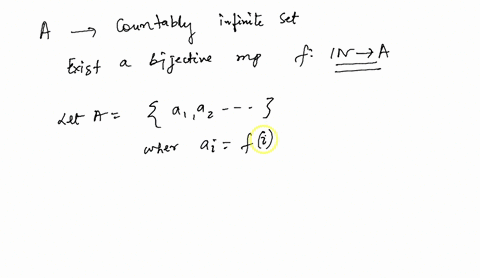 A → Countably infinite set
Exist a bijective mp f: IN → A
Let A = { a₁, a₂ --- }
wher aᵢ = f(i)